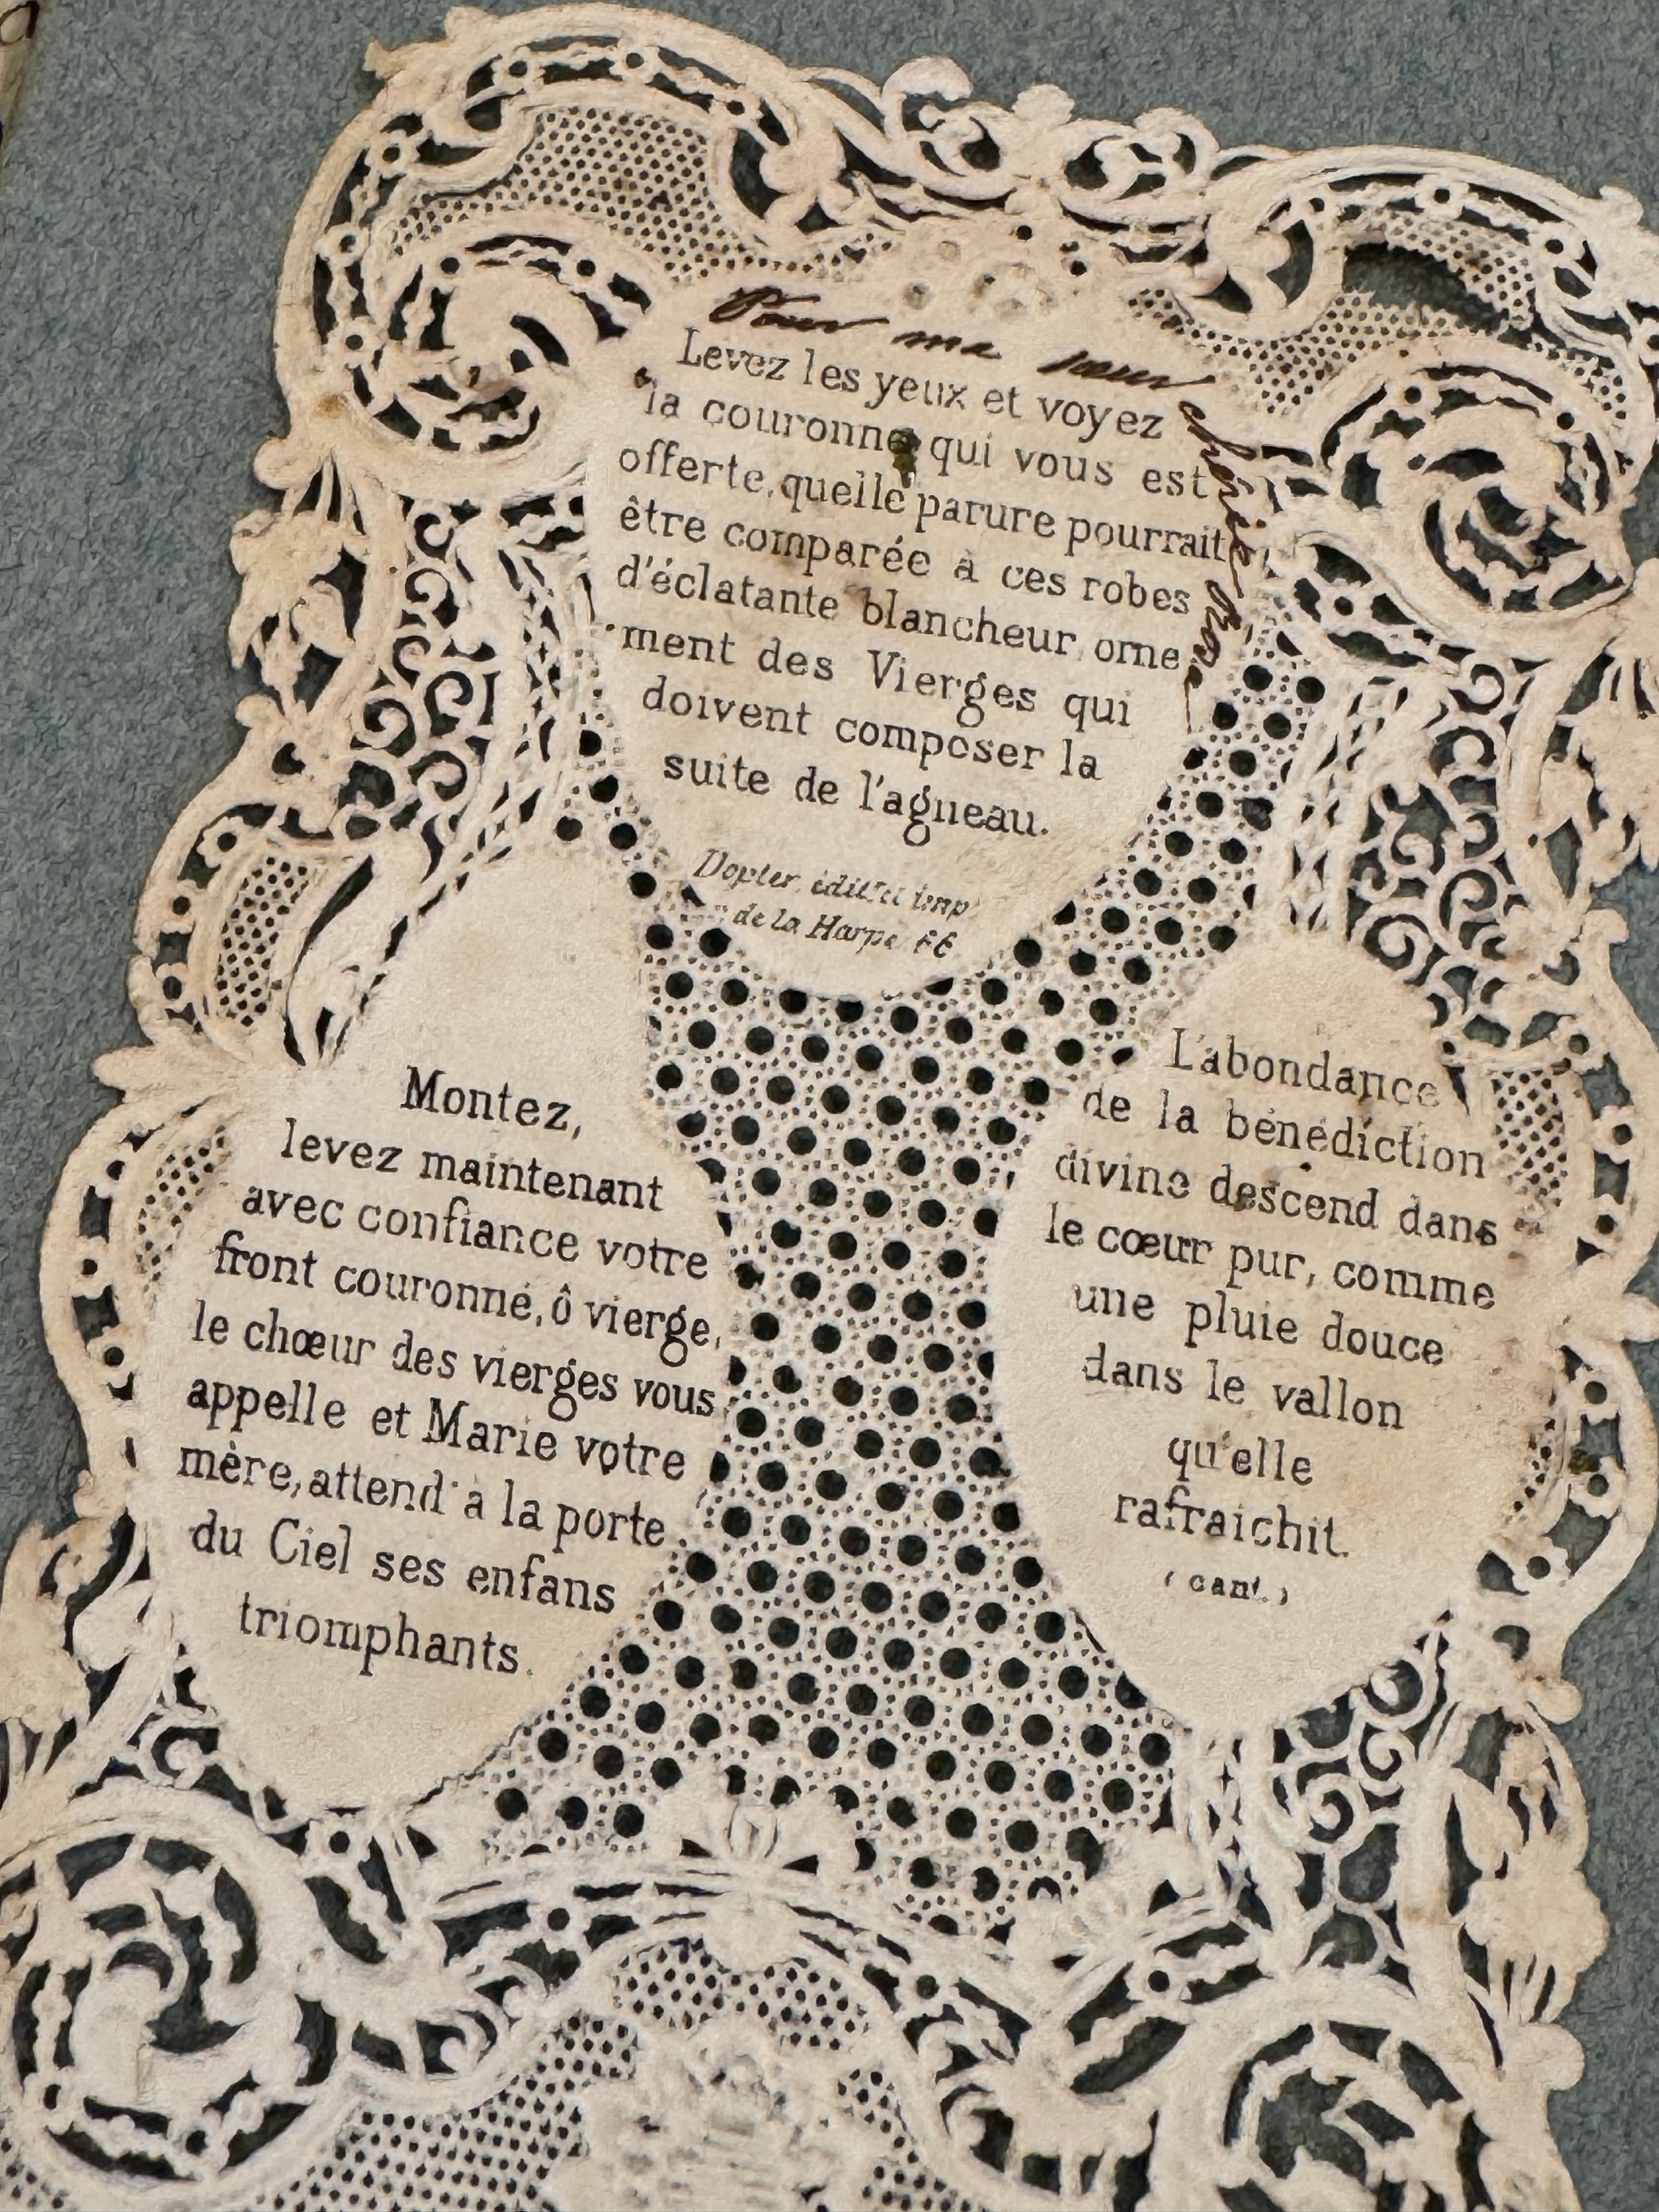 Pour ma sœur chérie
Levez les yeux et voyez
la couronne qui vous est
offerte, quelle parure pourrait
être comparée à ces robes
d'éclatante blancheur, orne
ment des Vierges qui
doivent composer la
suite de l'agneau.
Dopter, édit. et imp
de la Harpe
Montez,
levez maintenant
avec confiance votre
front couronné, ô vierge,
le chœur des vierges vous
appelle et Marie votre
mère, attend à la porte
du Ciel ses enfans
triomphants.
L'abondance
de la bénédiction
divine descend dans
le cœur pur, comme
une pluie douce
dans le vallon
qu'elle
rafraichit.
(cant.)